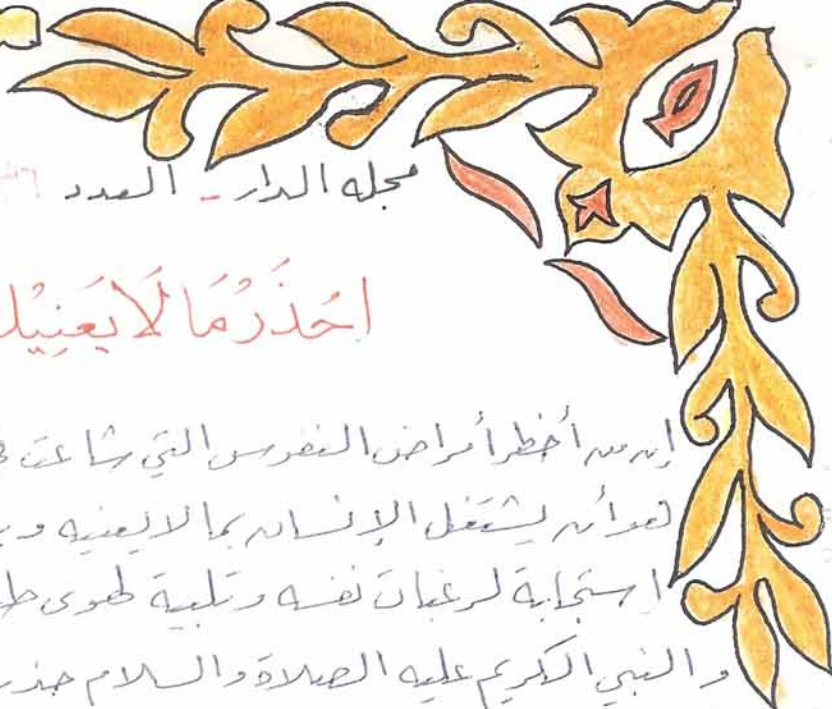 مجله الدار - العدد
احْذَرْ مَا لَا يَعْنِيْك
إن من أخطر أمراض النفوس التي شاعت في
هو أن يشتغل الإنسان بما لا يعنيه
استجابة لرغبات نفسه وتلبية لهوى
والنبي الكريم عليه الصلاة والسلام حذر